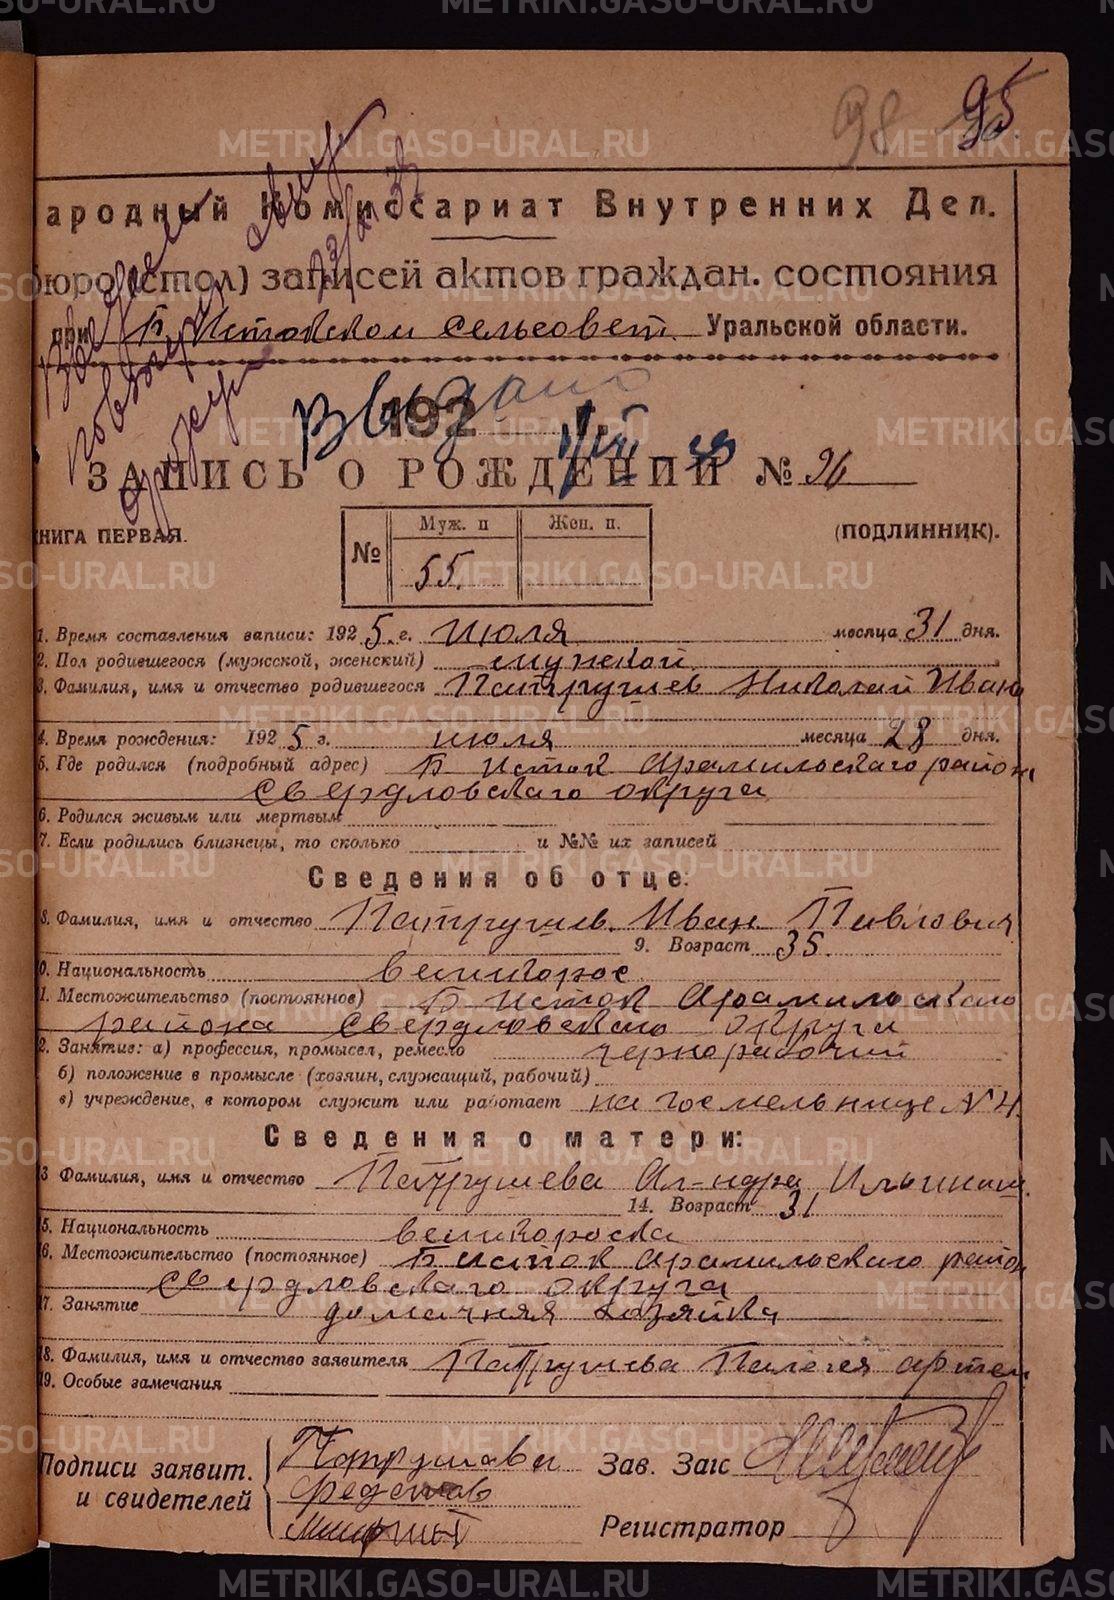 98 95
ародный Комиссариат Внутренних Дел.
бюро (стол) записей актов граждан. состояния
при Б Истокском сельсовет. Уральской области.
Выдано
192 г.
ЗАПИСЬ О РОЖДЕНИИ № 96
КНИГА ПЕРВАЯ. (ПОДЛИННИК).
№ Муж. п Жен. п.
55.
1. Время составления записи: 1925. г. июля месяца 31 дня.
2. Пол родившегося (мужской, женский) мужской.
3. Фамилия, имя и отчество родившегося Патрушев Николай Иван
4. Время рождения: 1925 г. июля месяца 28 дня.
5. Где родился (подробный адрес) Б Исток Арамильскаго района
Свердловскаго округа
6. Родился живым или мертвым
7. Если родились близнецы, то сколько и №№ их записей
Сведения об отце:
8. Фамилия, имя и отчество Патрушев. Иван Павлович
9. Возраст 35.
0. Национальность великорос
1. Местожительство (постоянное) Б Исток Арамильскаго
района Свердловскаго округа
2. Занятие: а) профессия, промысел, ремесло чернорабочий
б) положение в промысле (хозяин, служащий, рабочий)
в) учреждение, в котором служит или работает на госмельнице № 4
Сведения о матери:
3 Фамилия, имя и отчество Патрушева Ал-ндра Ильиниш.
14. Возраст 31
15. Национальность великороска
16. Местожительство (постоянное) Б исток Арамильскаго район
Свердловскаго округа
17. Занятие домачняя хозяйка
18. Фамилия, имя и отчество заявителя Патрушева Палагея артем
19. Особые замечания
Подписи заявит. Патрушава Зав. Загс
и свидетелей
Регистратор